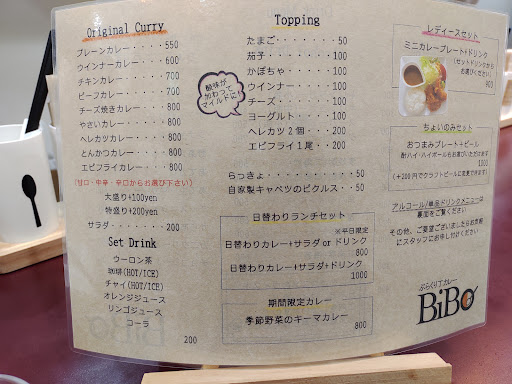 Original Curry
プレーンカレー・・・・・550
ウインナーカレー・・・・600
チキンカレー・・・・・・700
ビーフカレー・・・・・・700
チーズ焼きカレー・・・・800
やさいカレー・・・・・・800
ヘレカツカレー・・・・・800
とんかつカレー・・・・・800
エビフライカレー・・・・800
(甘口・中辛・辛口からお選び下さい)
大盛り+100yen
特盛り+200yen
サラダ・・・・・・200
Set Drink
ウーロン茶
珈琲(HOT/ICE)
チャイ(HOT/ICE)
オレンジジュース
リンゴジュース
コーラ
200
Topping
たまご・・・・・・・50
茄子・・・・・・・・100
かぼちゃ・・・・・・100
ウインナー・・・・・100
チーズ・・・・・・・100
ヨーグルト・・・・・100
ヘレカツ2個・・・・200
エビフライ1尾・・・200
酸味が
加わって
マイルドに!
らっきょ・・・・・・・50
自家製キャベツのピクルス・・50
日替わりランチセット
※平日限定
日替わりカレー+サラダ or ドリンク
800
日替わりカレー+サラダ+ドリンク
1000
期間限定カレー
季節野菜のキーマカレー
800
レディースセット
ミニカレープレート+ドリンク
(セットドリンクから
お選びください)
900
ちょいのみセット
おつまみプレート+ビール
酎ハイ・ハイボールもお選びいただけます
1000
(+200円でクラフトビールに変更できます)
アルコール/単品ドリンクメニューは
裏面をご覧ください
その他、ご要望ございましたらお気軽
にスタッフにお申し付けください
ぶらくり丁カレー
BiBo